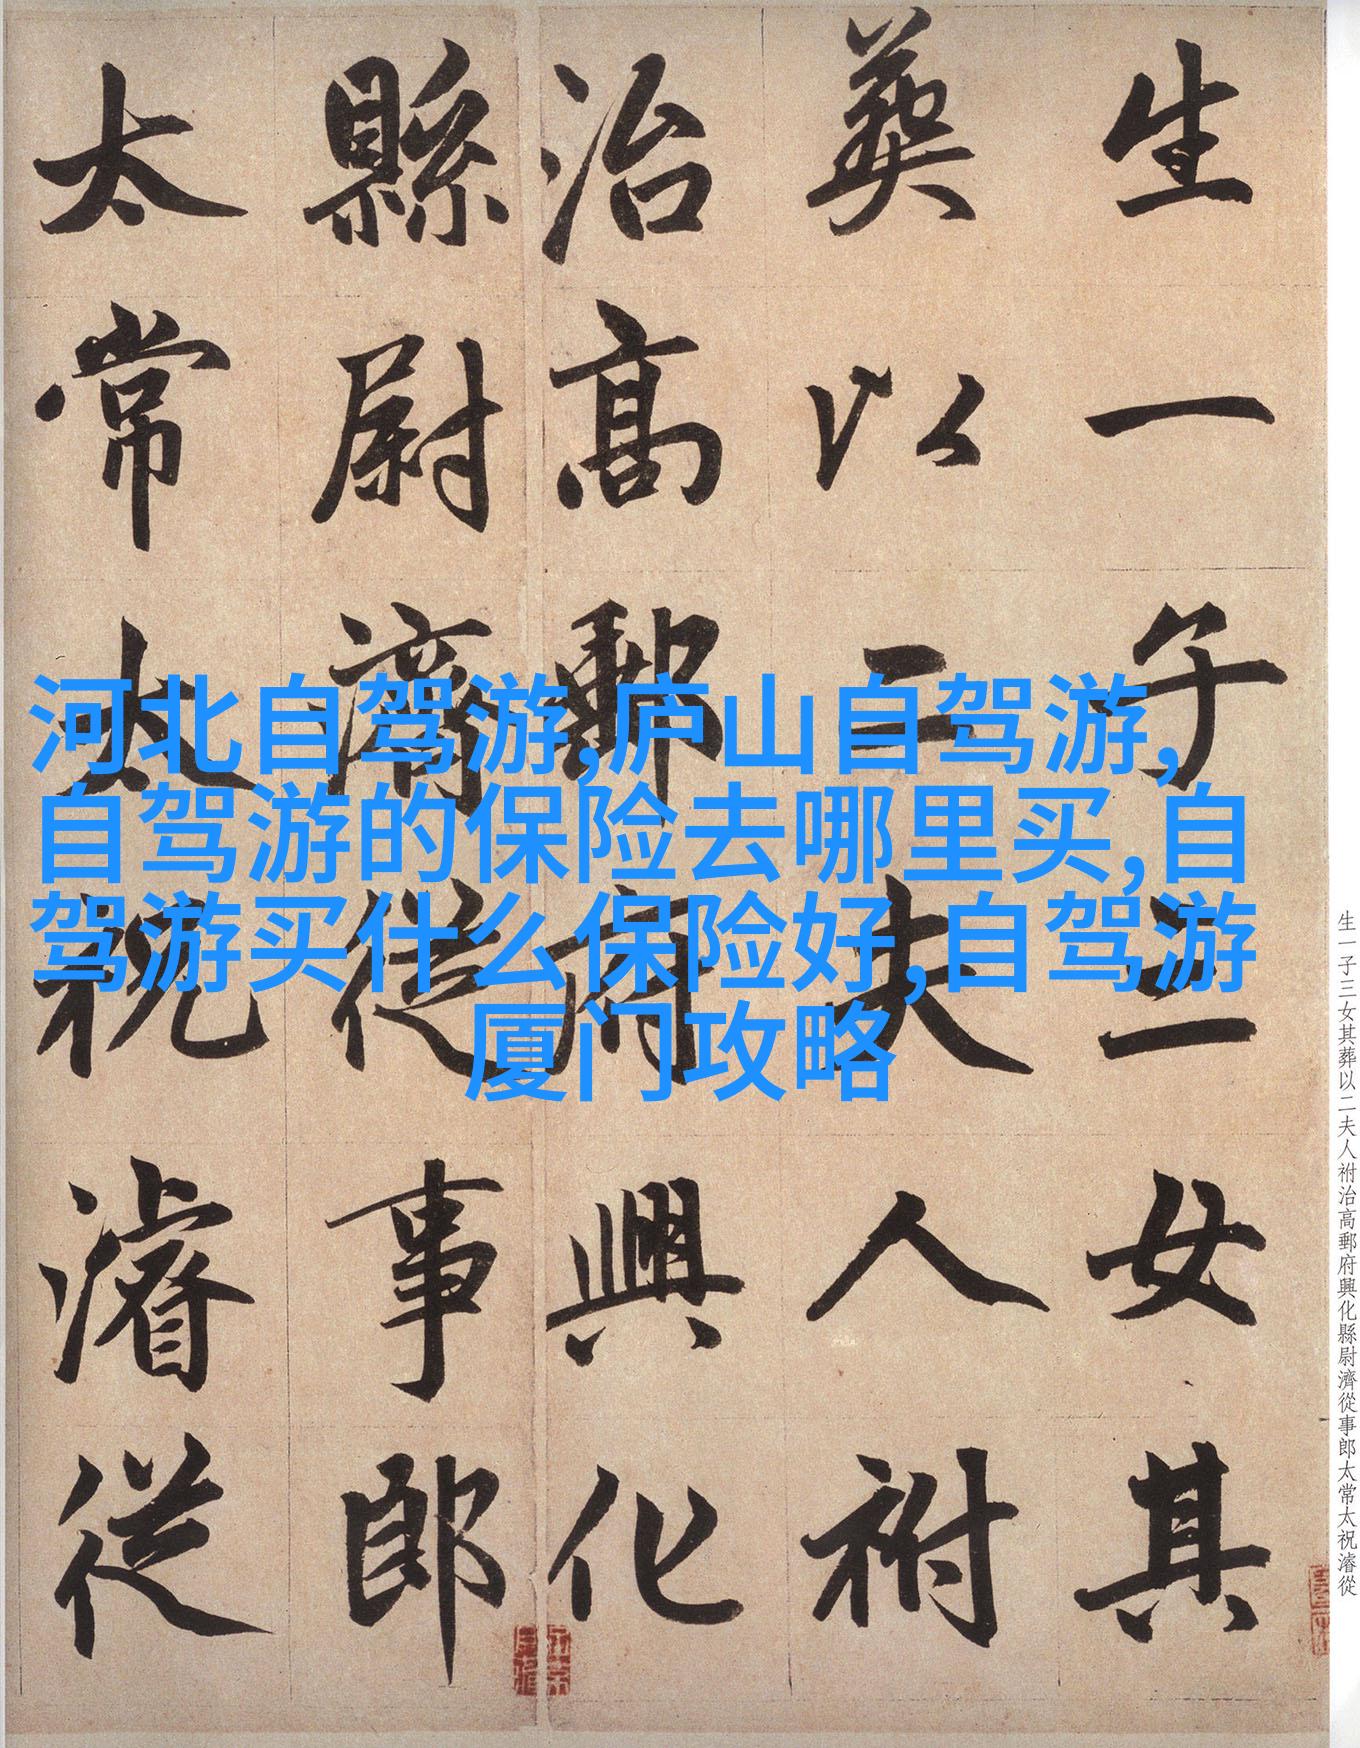 生一子三女其葬以二夫人祔治高郵府興化縣尉濟從事郎太常太祝濬從
生一子三女其
葬以二夫人祔
治高郵府興化
縣尉濟從事郎
太常太祝濬從
河北自驾游,庐山自驾游,
自驾游的保险去哪里买,自
驾游买什么保险好,自驾游
厦门攻略